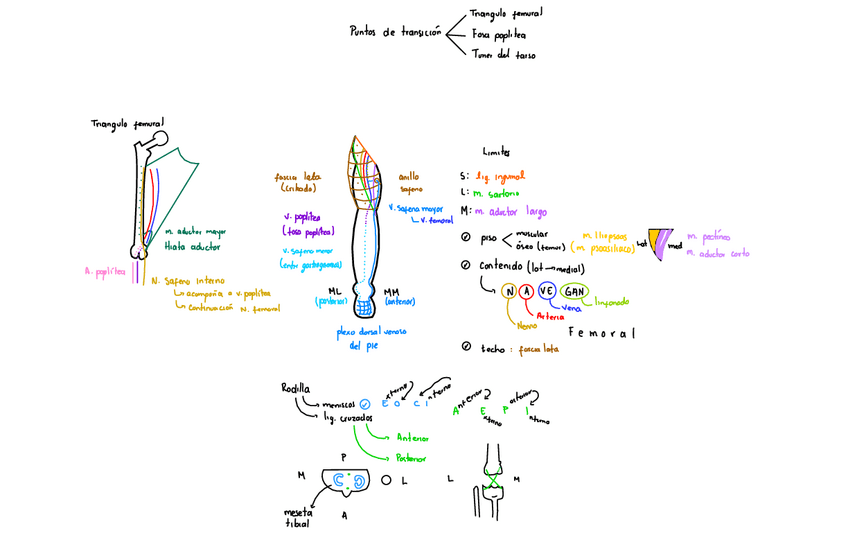 Puntos de transición
Triangulo femoral
Fosa poplítea
Tunel del tarso
Triangulo femoral
m. aductor mayor
Hiato aductor
A. poplítea
N. Safeno interno
acompaña a v. poplitea
continuación N. femoral
fascia lata
(cribado)
anillo
safeno
v. safena mayor
v. femoral
v. poplítea
(fosa poplítea)
v. safena menor
(entre gastrognemios)
ML
(posterior)
MM
(anterior)
plexo dorsal venoso
del pie
Limites
S: lig. inguinal
L: m. sartorio
M: m. aductor largo
piso
muscular
óseo (femur)
m. Iliopsoas
(m. psoasiliaco)
Lat
med
m. pectíneo
m. aductor corto
Contenido (lat → medial)
N A VE GAN
linfonodo
Vena
Arteria
Nervio
Femoral
techo: fascia lata
Rodilla
meniscos
E xterno O C I nterno
lig. cruzados
A nterior E xterno P osterior I nterno
Anterior
Posterior
P
M
L
A
meseta
tibial
L
M